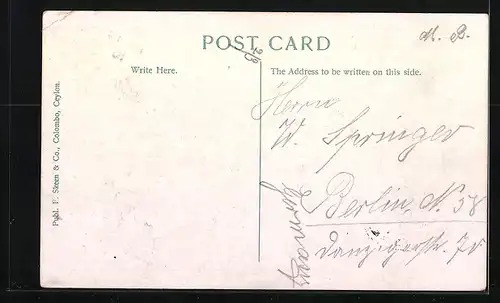 POST CARD
M. B.
Write Here.
The Address to be written on this side.
Herrn
W. Springer
Berlin N. 58
Danzigerstr. 70
Germany
Publ. F. Skeen & Co., Colombo, Ceylon.